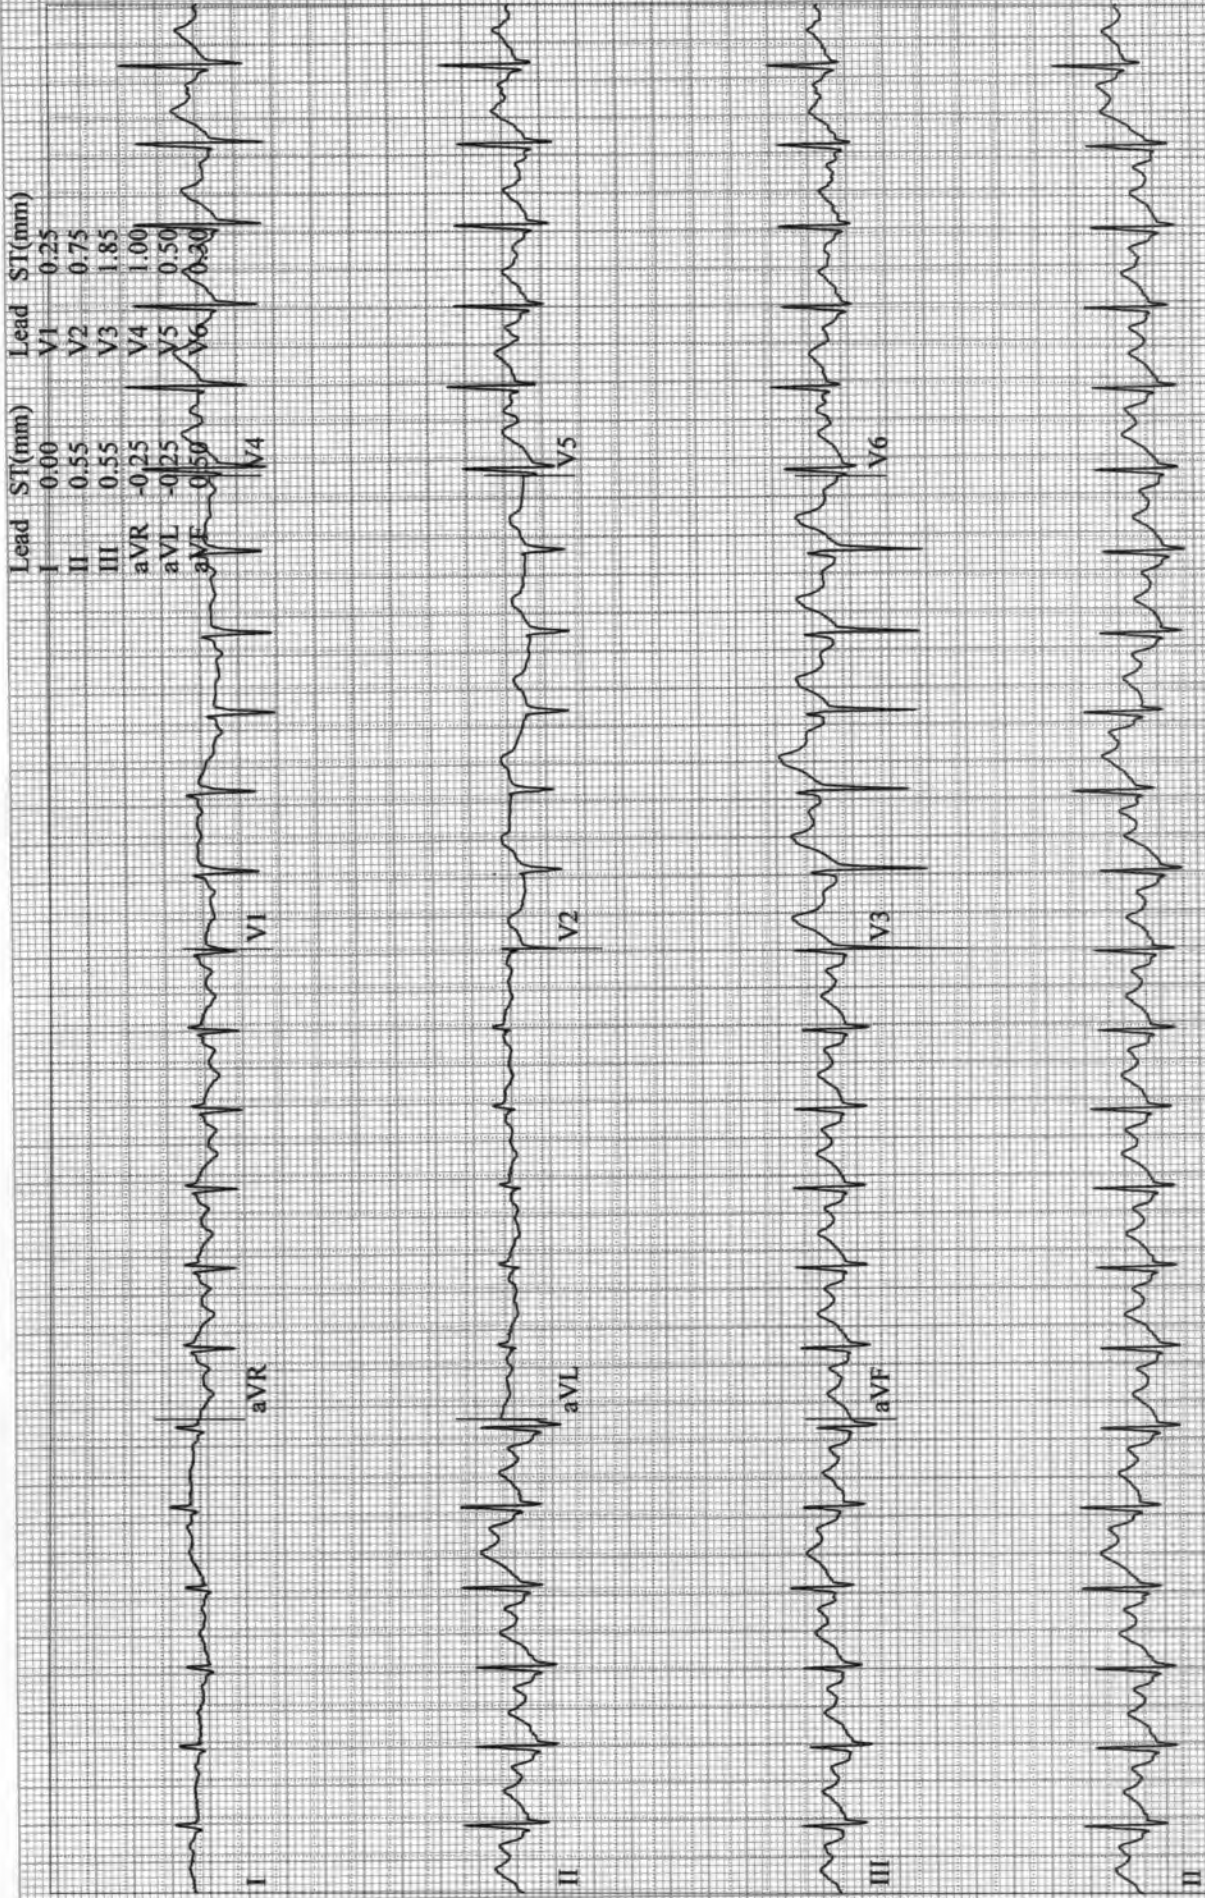 Lead ST(mm) Lead ST(mm)
I 0.00 V1 0.25
II 0.55 V2 0.75
III 0.55 V3 1.85
aVR -0.25 V4 1.00
aVL -0.25 V5 0.50
aVF 0.50 V6 0.30
I aVR V1 V4
II aVL V2 V5
III aVF V3 V6
II